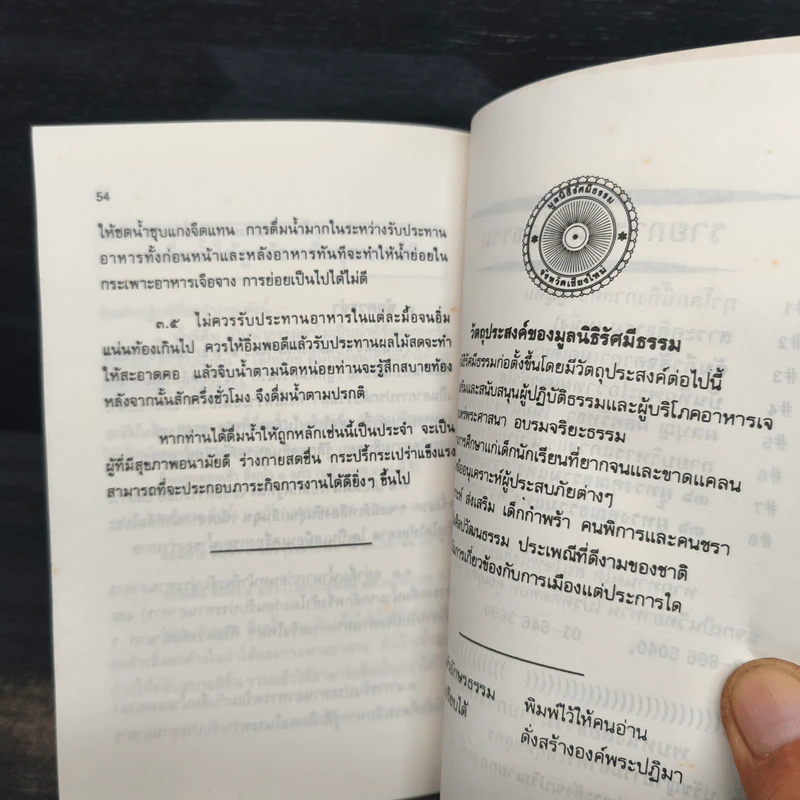 54
ให้ซดน้ำซุบแกงจืดแทน การดื่มน้ำมากในระหว่างรับประทาน
อาหารทั้งก่อนหน้าและหลังอาหารทันทีจะทำให้น้ำย่อยใน
กระเพาะอาหารเจือจาง การย่อยเป็นไปได้ไม่ดี
๓.๕ ไม่ควรรับประทานอาหารในแต่ละมื้อจนอิ่ม
แน่นท้องเกินไป ควรให้อิ่มพอดีแล้วรับประทานผลไม้สดจะทำ
ให้สะอาดคอ แล้วจิบน้ำตามนิดหน่อยท่านจะรู้สึกสบายท้อง
หลังจากนั้นสักครึ่งชั่วโมง จึงดื่มน้ำตามปรกติ
หากท่านได้ดื่มน้ำให้ถูกหลักเช่นนี้เป็นประจำ จะเป็น
ผู้ที่มีสุขภาพอนามัยดี ร่างกายสดชื่น กระปรี้กระเปร่าแข็งแรง
สามารถที่จะประกอบภาระกิจการงานได้ดียิ่งๆ ขึ้นไป
มูลนิธิรัศมีธรรม
จังหวัดเชียงใหม่
วัตถุประสงค์ของมูลนิธิรัศมีธรรม
รัศมีธรรมก่อตั้งขึ้นโดยมีวัตถุประสงค์ต่อไปนี้
และสนับสนุนผู้ปฏิบัติธรรมและผู้บริโภคอาหารเจ
พระศาสนา อบรมจริยะธรรม
การศึกษาแก่เด็กนักเรียนที่ยากจนและขาดแคลน
อนุเคราะห์ผู้ประสบภัยต่างๆ
ส่งเสริม เด็กกำพร้า คนพิการและคนชรา
ศิลปวัฒนธรรม ประเพณีที่ดีงามของชาติ
การเกี่ยวข้องกับการเมืองแต่ประการใด
อักษรธรรม พิมพ์ไว้ให้คนอ่าน
ดั่งสร้างองค์พระปฏิมา